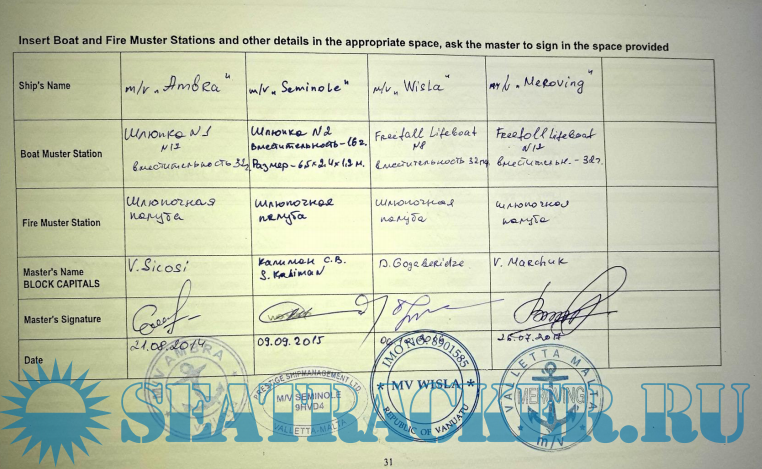 Insert Boat and Fire Muster Stations and other details in the appropriate space, ask the master to sign in the space provided
Ship's Name
m/v „Ambra"
m/v „Seminole"
m/v „Wisla"
m/v „Meroving"
Boat Muster Station
Шлюпка N1
вместительность 32
Шлюпка N2
Вместительность-16 г.
Размер-6.5×2.4×1.2 м.
Freefall Lifeboat
вместительность 32
Freefall Lifeboat
вместительн. - 32г.
Fire Muster Station
Шлюпочная
палуба
Шлюпочная
палуба
Шлюпочная
палуба
Шлюпочная
палуба
Master's Name
BLOCK CAPITALS
V. Sicosi
Калиман С.В.
S. Kaliman
D. Gogeberidze
V. Marchuk
Master's Signature
Date
21.08.2014
09.09.2015
25.07.2017
M/V AMBRA
PRESTIGE SHIPMANAGEMENT LTD
M/V SEMINOLE
9HVD4
VALLETTA-MALTA
IMO NO: 8901585
* MV WISLA *
REPUBLIC OF VANUATU
VALLETTA MALTA
MEROVING
m/v
SEATRACKER.RU
31